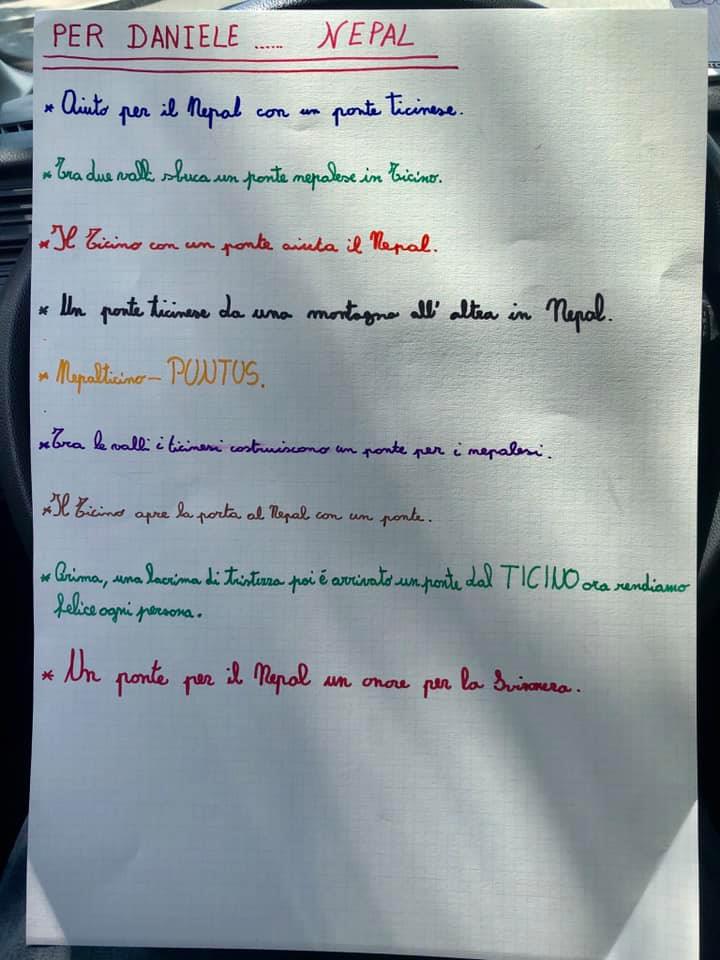 PER DANIELE ...... NEPAL
* Aiuto per il Nepal con un ponte ticinese.
* Tra due valli sbuca un ponte nepalese in Ticino.
* Il Ticino con un ponte aiuta il Nepal.
* Un ponte ticinese da una montagna all' altra in Nepal.
* Nepalticino - PUNTUS.
* Tra le valli i ticinesi costruiscono un ponte per i nepalesi.
* Il Ticino apre la porta al Nepal con un ponte.
* Prima, una lacrima di tristezza poi é arrivato un ponte dal TICINO ora rendiamo
felice ogni persona.
* Un ponte per il Nepal un onore per la Svizzera.